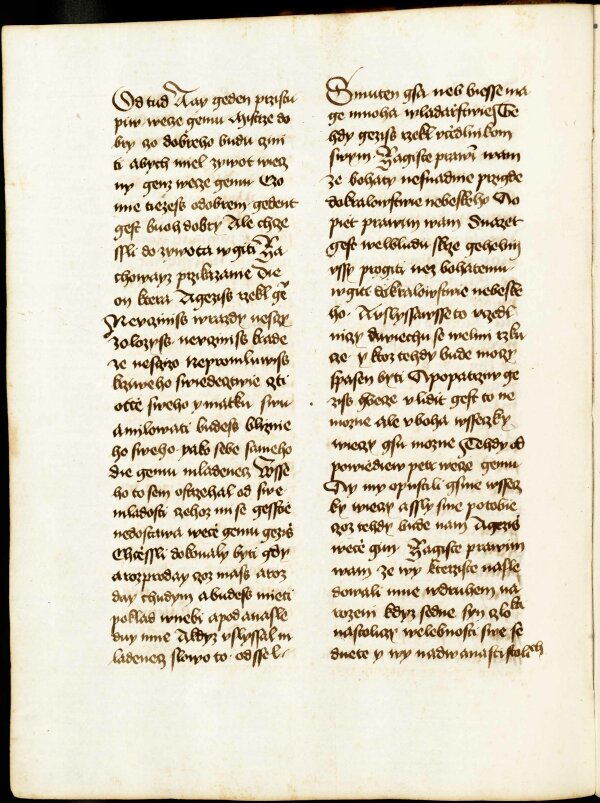 Od tud A ay geden przistu
piw wece gemu Mystrze do
bry czo dobreho budu czini
ti abych miel zywot wecz
ny genz wece gemu Czo
mne tiezess odobrem geden
gest buoh dobry Ale chcze
ssli do zywota wgiti Za
chowayz przikazanie Die
on ktera A geziss rzekl ge
Neucziniss wrazdy nesez
zolozyss neuczniss krade
ze nesezo nepromluwiss
krziweho swiedecztwie czti
otce sweho y matku swu
a milowati budess blizne
ho sweho yako sebe sameho
die gemu mladenecz Wsse
ho to sem ostrzehal od swe
mladosti czehoz mi se gesscze
nedostawa wece gemu geziss
Chcessli dokonaly byti gdy
a rozproday czoz mass a roz
day chudym a budess mieti
poklad wnebi a pod a nasle
duy mne A kdyz vslyssal m
ladenecz slowo to odssel
Smuten gsa neb biesse ma
ge mnoha wladarzstwie Te
hdy geziss rzekl vczedlnikom
swym Zagiste prawi wam
ze bohaty nesnadnie przigde
dokralowstwie nebeskeho A o
piet prawim wam Snazet
gest welbludu skrze gehelni
vssy progiti nez bohatemu
wgiti dokralowstwie nebeske
ho A vslyssawsse to vczedl
niczy diwiechu se welmi rzku
cze y ktoz tehdy bude moczy
spasen byti A popatrziw ge
ziss wece v lidit gest to ne
mozne ale v boha wsseczky
wieczy gsu mozne Tehdy od
powiediew petr wece gemu
Ay my opustili gsme wssecz
ky wieczy a ssly sme po tobie
czoz tehdy bude nam A geziss
wece gim Zagiste prawim
wam ze wy kterziste nasle
dowali mne wdruhem na
rozeni kdyz sedne syn czlo ka
na stoliczi welebnosti swe se
dnete y wy nadwanaczti stolech